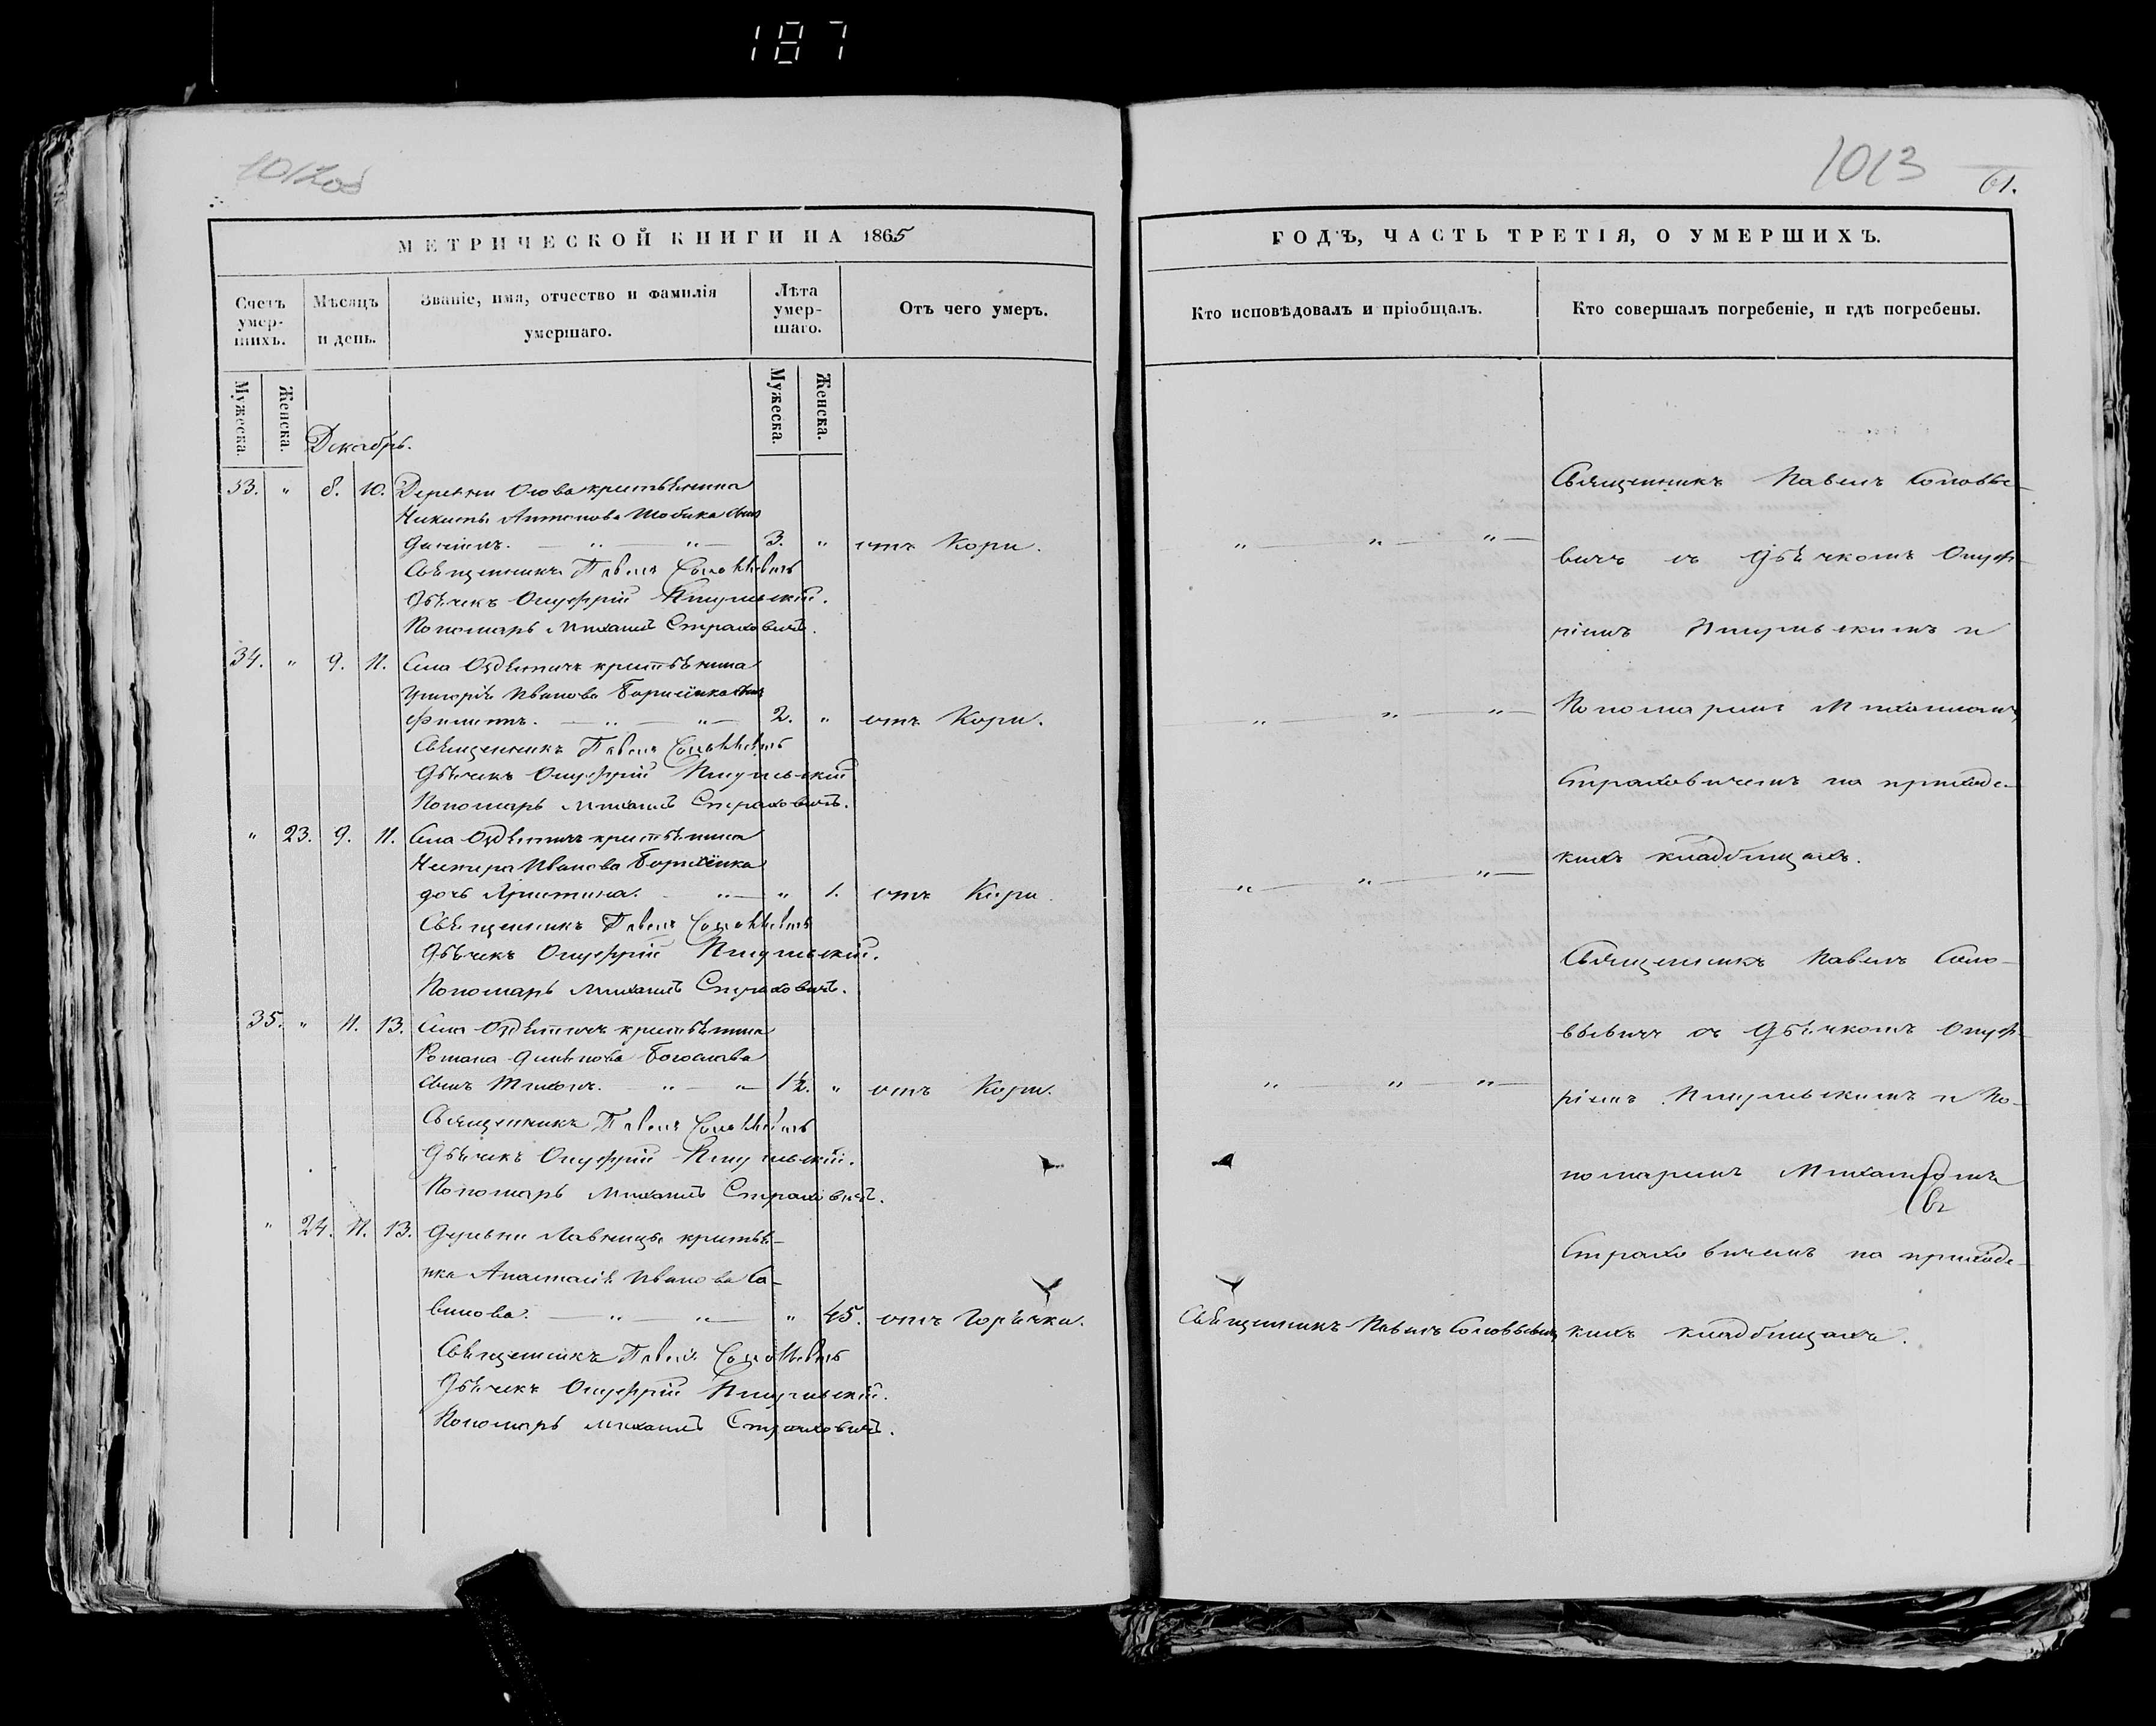 187
1012об
МЕТРИЧЕСКОЙ КНИГИ НА 1865
Счетъ умер-шихъ.
Мѣсяцъ и день.
Званіе, имя, отчество и фамилія умершаго.
Лѣта умер-шаго.
Отъ чего умеръ.
Мужеска.
Женска.
Мужеска.
Женска.
Декабрь.
33. " 8. 10. Деревни Осова крестьянина
Никиты Антонова Шобика сынъ
Даніилъ. — " — " — 3. " отъ Кори.
Священникъ Павелъ Соловьевичъ
Дьячекъ Онуфрій
Пономарь Михаилъ Страховичъ.
34. " 9. 11. Села Оздѣтичъ крестьянина
Григорія Иванова сынъ
Филиппъ. — " — " — 2. " отъ Кори.
Священникъ Павелъ Соловьевичъ
Дьячекъ Онуфрій
Пономарь Михаилъ Страховичъ.
" 23. 9. 11. Села Оздѣтичъ крестьянина
Иванова
дочь Христина. — " — " 1. отъ Кори.
Священникъ Павелъ Соловьевичъ
Дьячекъ Онуфрій
Пономарь Михаилъ Страховичъ.
35. " 11. 13. Села Оздѣтичъ крестьянина
Романа
сынъ Тихонъ. — " — " — 1½. " отъ Кори.
Священникъ Павелъ Соловьевичъ
Дьячекъ Онуфрій
Пономарь Михаилъ Страховичъ.
" 24. 11. 13. Деревни крестьян-
ка Анастасія Иванова Са-
винова. — " — " — " 45. отъ Горячки.
Священникъ Павелъ Соловьевичъ
Дьячекъ Онуфрій
Пономарь Михаилъ Страховичъ.
1013
61.
ГОДЪ, ЧАСТЬ ТРЕТІЯ, О УМЕРШИХЪ.
Кто исповѣдовалъ и пріобщалъ.
Кто совершалъ погребеніе, и гдѣ погребены.
" — " — " —
" — " — " —
" — " — " —
" — " — " —
Священникъ Павелъ Соловьевичъ
Священникъ Павелъ Соловье-
вичъ съ Дьячкомъ Онуф-
ріемъ и
Пономаремъ Михаиломъ
Страховичемъ на приходс-
кихъ кладбищахъ.
Священникъ Павелъ Соло-
вьевичъ съ Дьячкомъ Онуф-
ріемъ и По-
номаремъ Михаиломъ
Страховичемъ на приходс-
кихъ кладбищахъ.